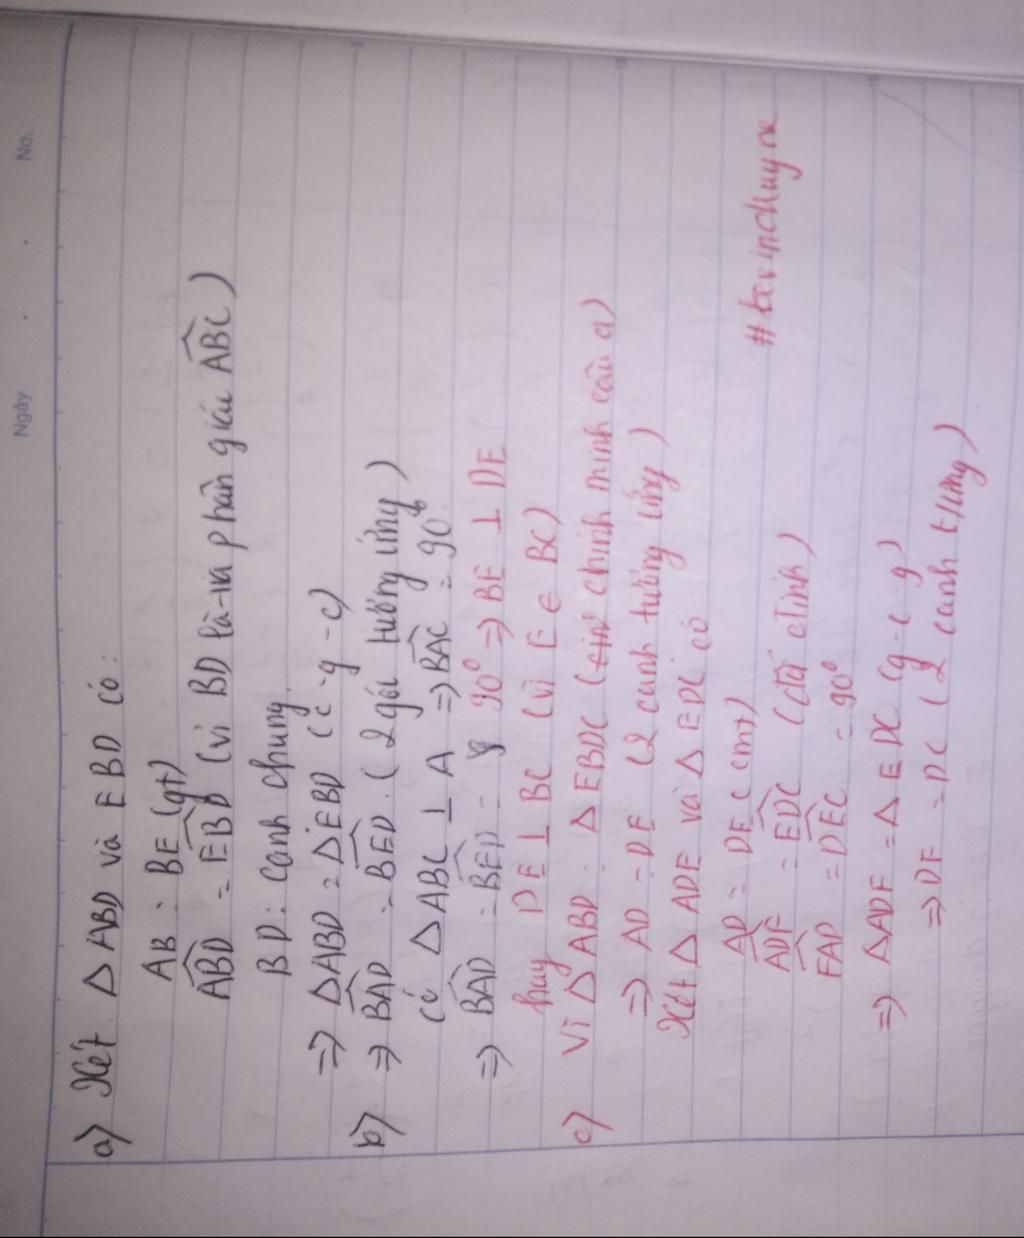 Ngày . . No.
a) Xét △ABD và EBD có:
AB = BE (gt)
ABD = EBD (vì BD là tia phân giác ABC)
BD: cạnh chung
=> △ABD = △EBD (c-g-c)
b) => BAD = BED. (2 góc tương ứng)
Có △ABC ⊥ A => BAC = 90°
=> BAD = BED = 90° => BE ⊥ DE
hay DE ⊥ BC (vì E ∈ BC)
c) Vì △ABD = △EBDC (chính minh câu a)
=> AD = DE (2 cạnh tương ứng)
Xét △ADF và △EDC có
AD = DE (cmt)
ADF = EDC (đối đỉnh)
FAD = DEC = 90°
#kevinchuyne
=> △ADF = △EDC (g-c-g)
=> DF = DC (2 cạnh t/ứng)